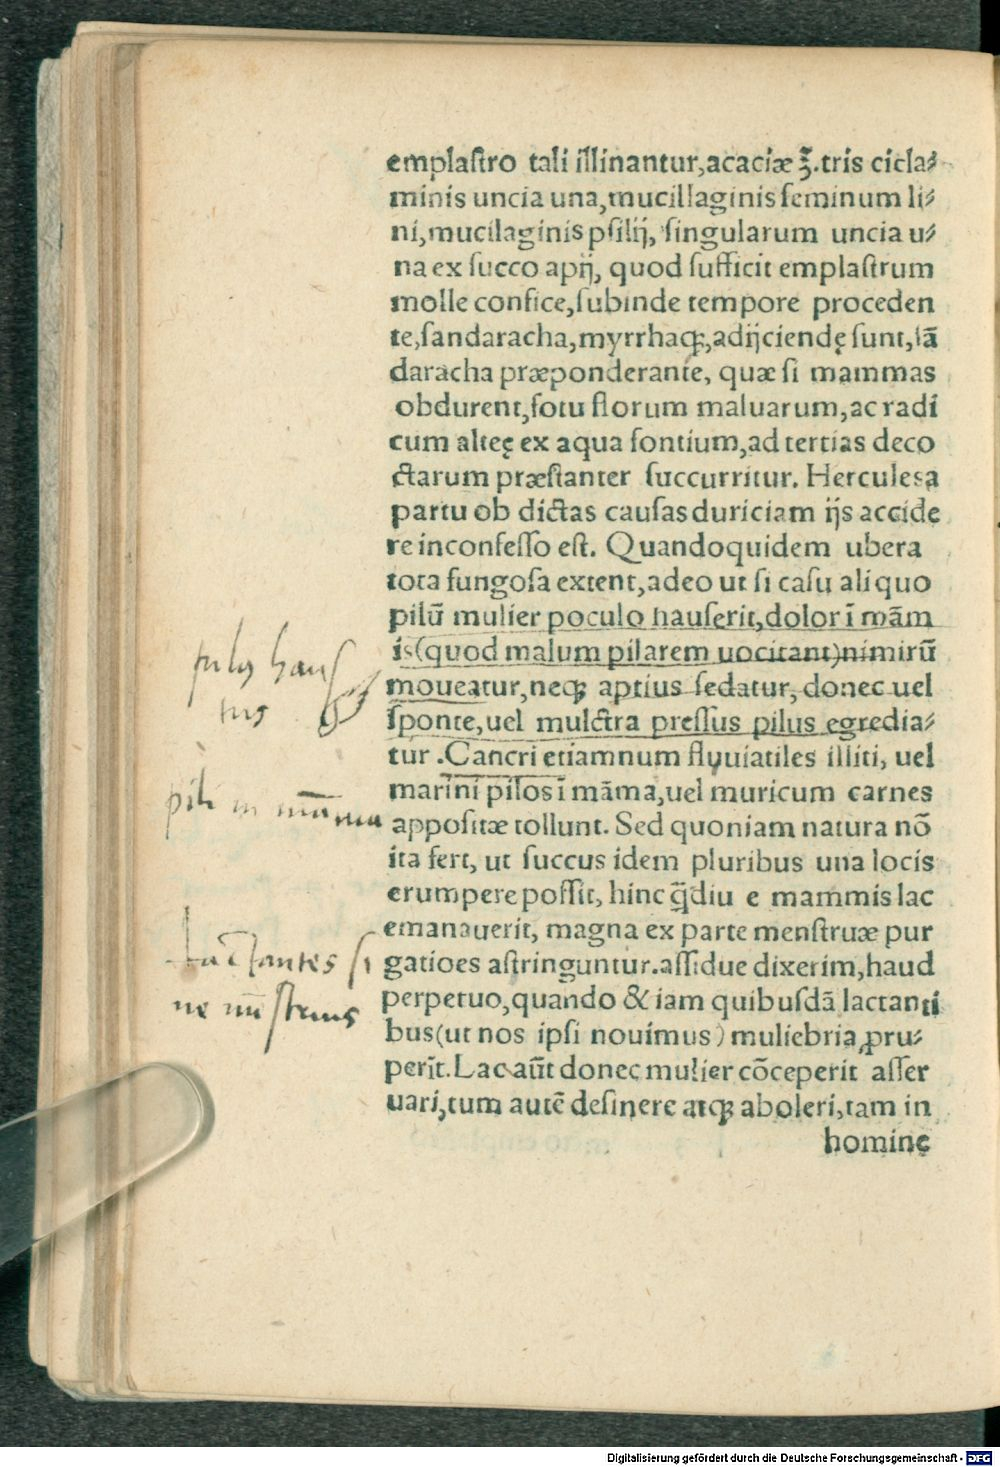 emplastro tali illinantur,acaciæ ʒ̃.tris cicla⸗
minis uncia una,mucillaginis seminum li⸗
ni,mucilaginis psilij, singularum uncia u⸗
na ex succo apij, quod sufficit emplastrum
molle confice,subinde tempore proceden
te,sandaracha,myrrhaq;,adijciendę sunt,sā
daracha præponderante, quæ si mammas
obdurent,fotu florum maluarum,ac radi
cum alteę ex aqua fontium,ad tertias deco
ctarum præstanter succurritur. Hercules a
partu ob dictas causas duriciam ijs accide
re inconfesso est. Quandoquidem ubera
tota fungosa extent,adeo ut si casu aliquo
pilū mulier poculo hauserit,dolor ī mām
is(quod malum pilarem uocitant)nimirū
moueatur,neq; aptius sedatur, donec uel
sponte,uel mulctra pressus pilus egredia⸗
tur .Cancri etiamnum fluuiatiles illiti, uel
marini pilos ī māma,uel muricum carnes
appositæ tollunt. Sed quoniam natura nō
ita fert, ut succus idem pluribus una locis
erumpere possit, hinc q̄diu e mammis lac
emanauerit, magna ex parte menstruæ pur
gatioes astringuntur.assidue dixerim,haud
perpetuo,quando & iam quibusdā lactanti
bus(ut nos ipsi nouimus) muliebria ꝓru⸗
perīt.Lac aūt donec mulier cōceperit asser
uari,tum autē desinere atq; aboleri,tam in
homine
pilus haus
tus
pili in māma
Lactantes si
ne mēstruis
Digitalisierung gefördert durch die Deutsche Forschungsgemeinschaft - DFG